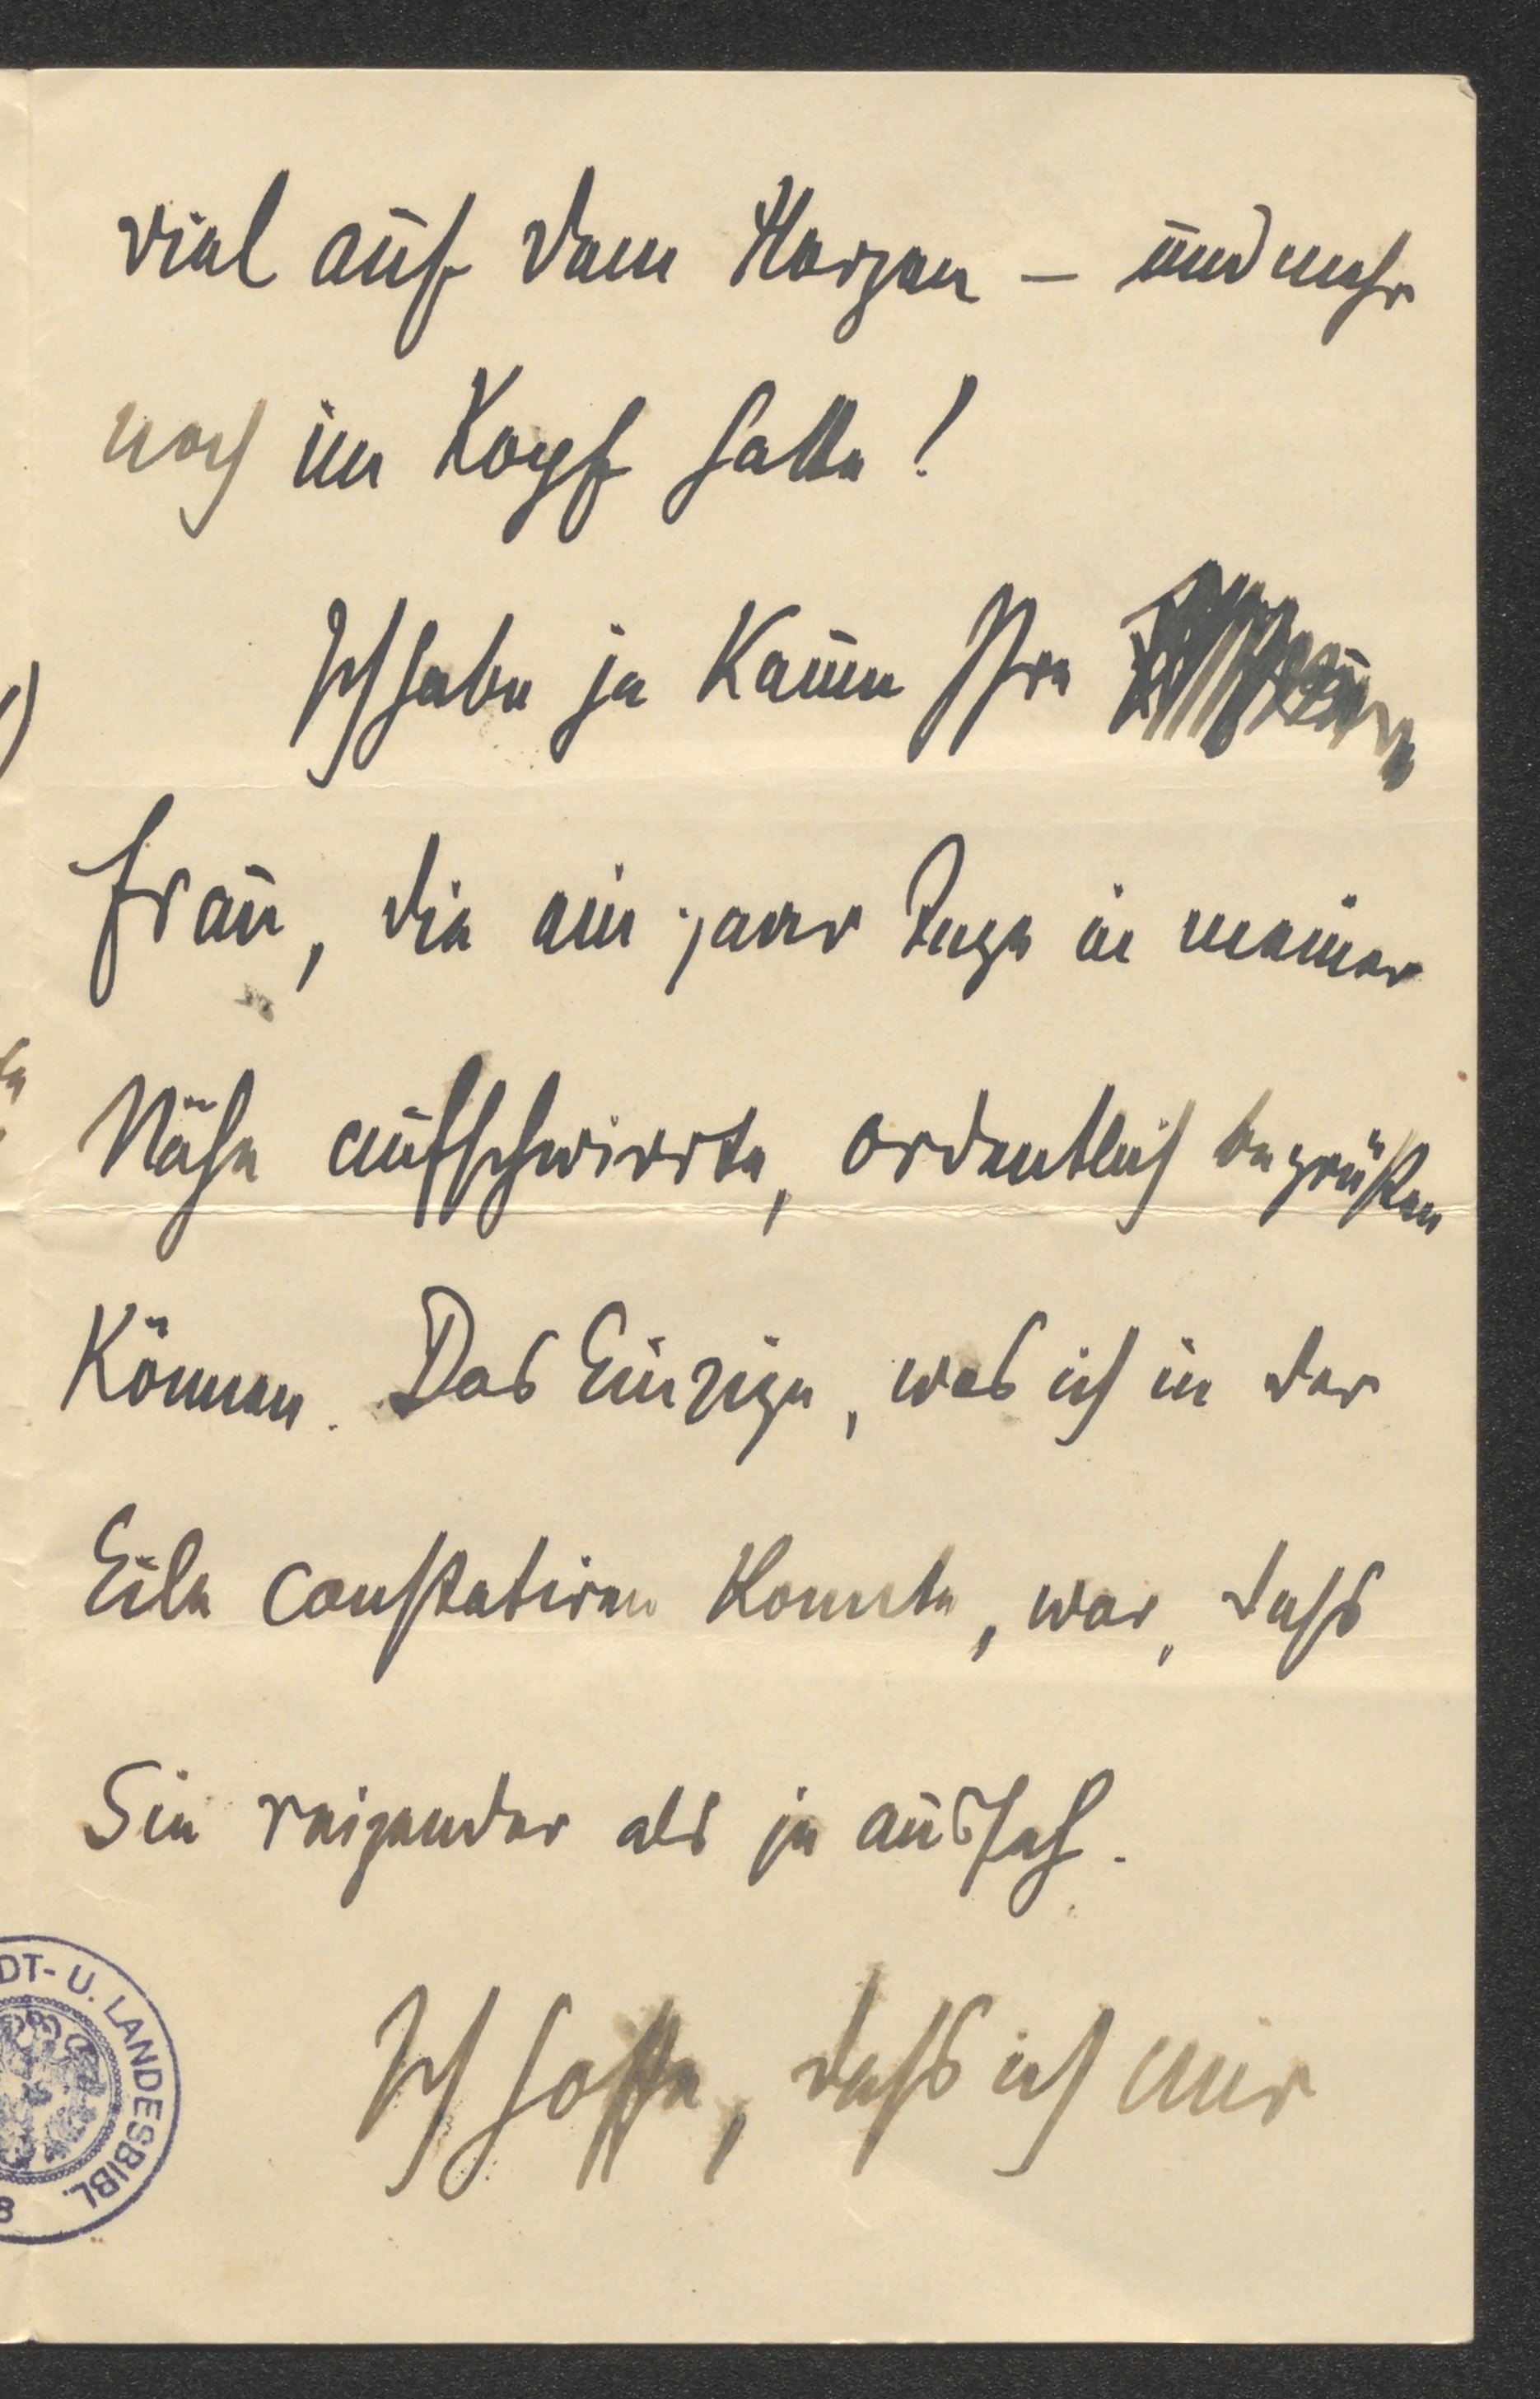 viel auf dem Herzen – und mehr
noch im Kopf hatte!
Ich habe ja kaum Ihre
Frau, die ein paar Tage in meiner
Nähe aufschwirrte, ordentlich begrüßen
können. Das Einzige, was ich in der
Eile constatiren konnte, war, dass
Sie reizender als je aussah.
Ich hoffe, dass ich mir
DT- U. LANDESBIBL.